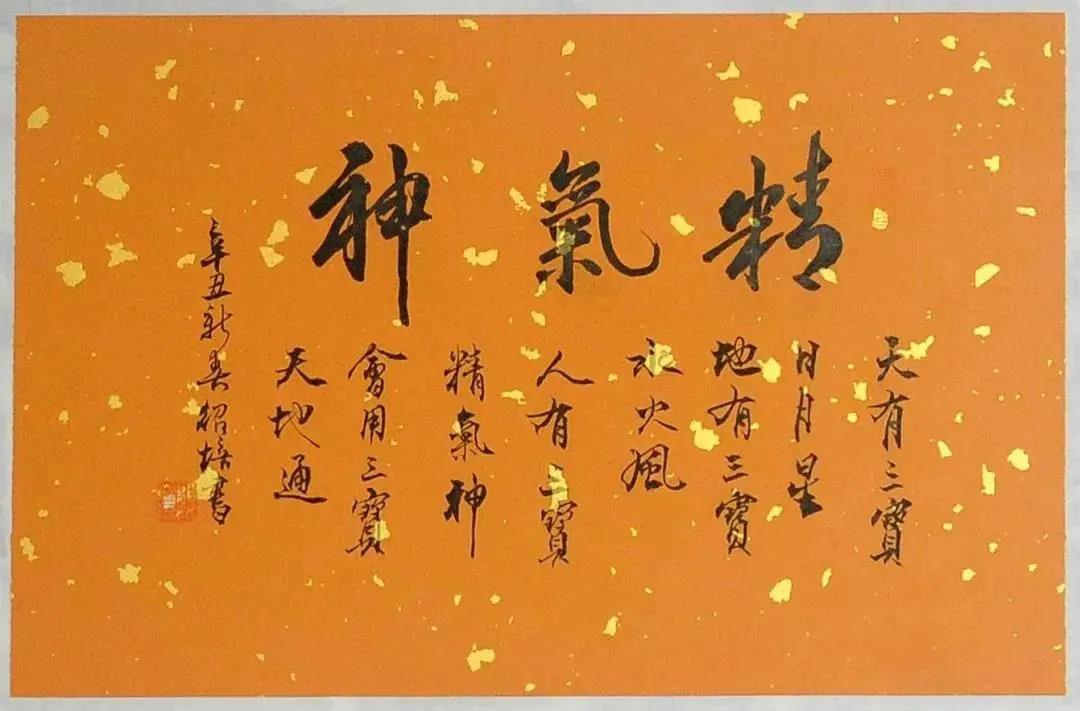 精氣神
天有三寶
日月星
地有三寳
水火風
人有三寶
精氣神
會用三寶
天地通
辛丑新春紹培書